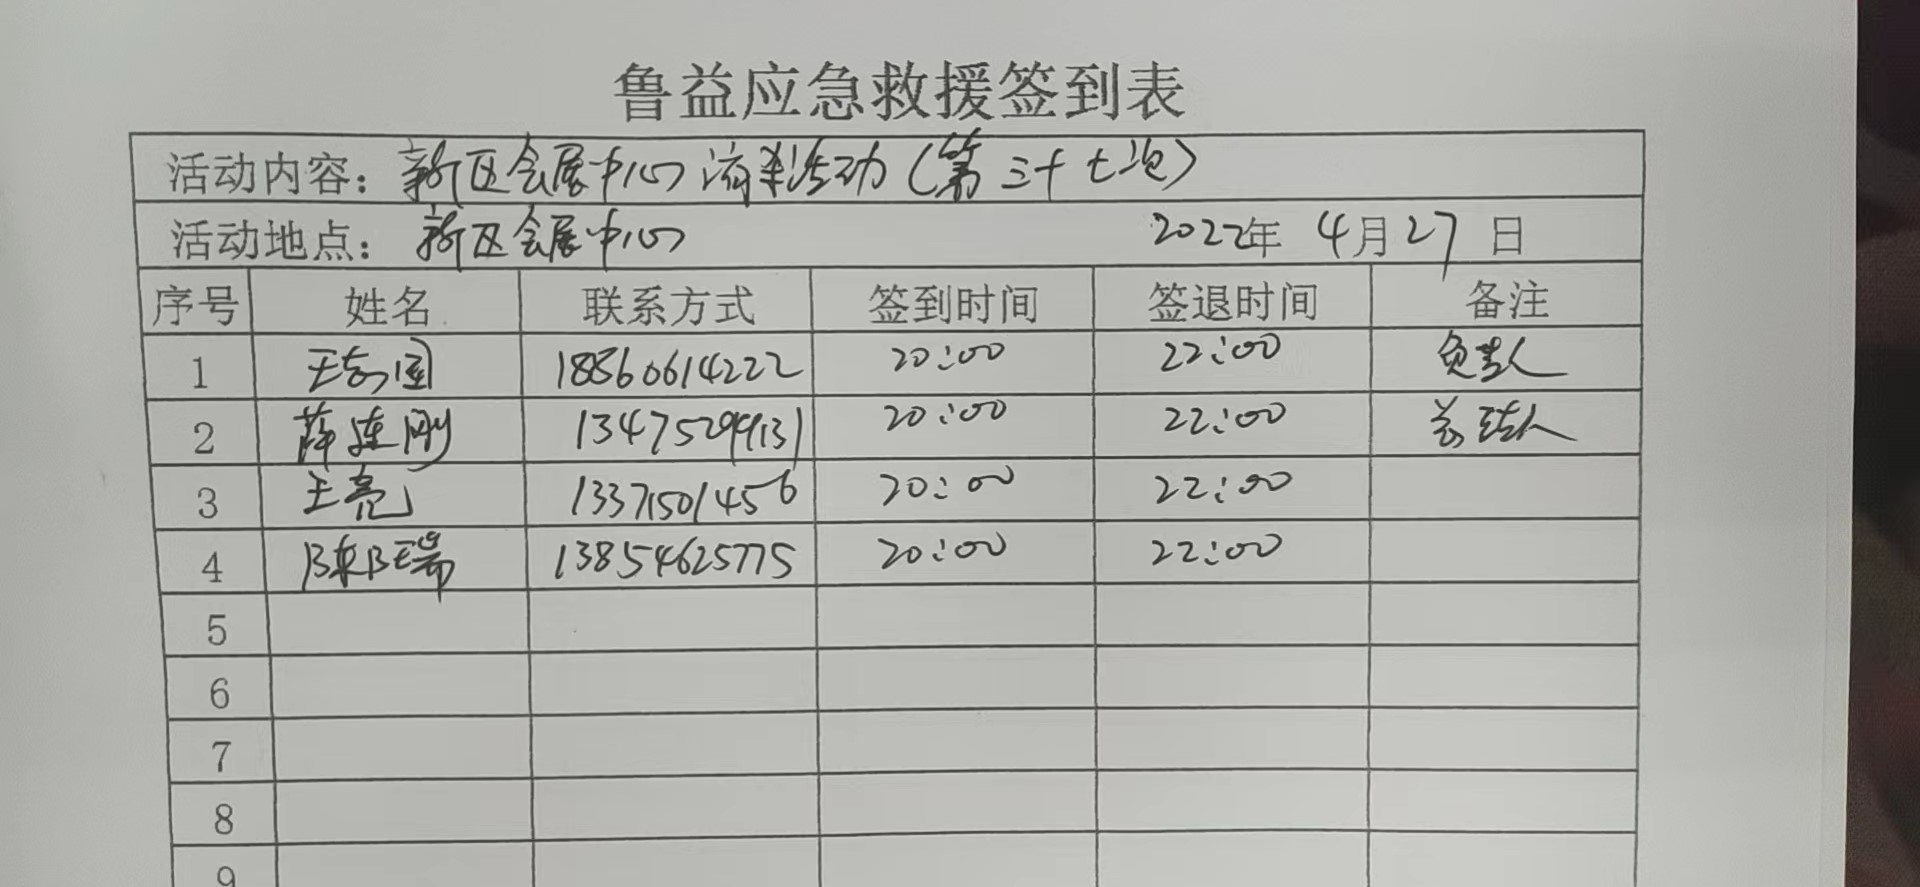 鲁益应急救援签到表
活动内容：新区会展中心消杀活动（第三十七次）
活动地点：新区会展中心 2022年 4月27日
序号 姓名 联系方式 签到时间 签退时间 备注
1 王志国 18860614222 20:00 22:00 负责人
2 薛连刚 13475299131 20:00 22:00 总结人
3 王亮 13371501456 20:00 22:00
4 陈瑞 13854625775 20:00 22:00
5
6
7
8
9